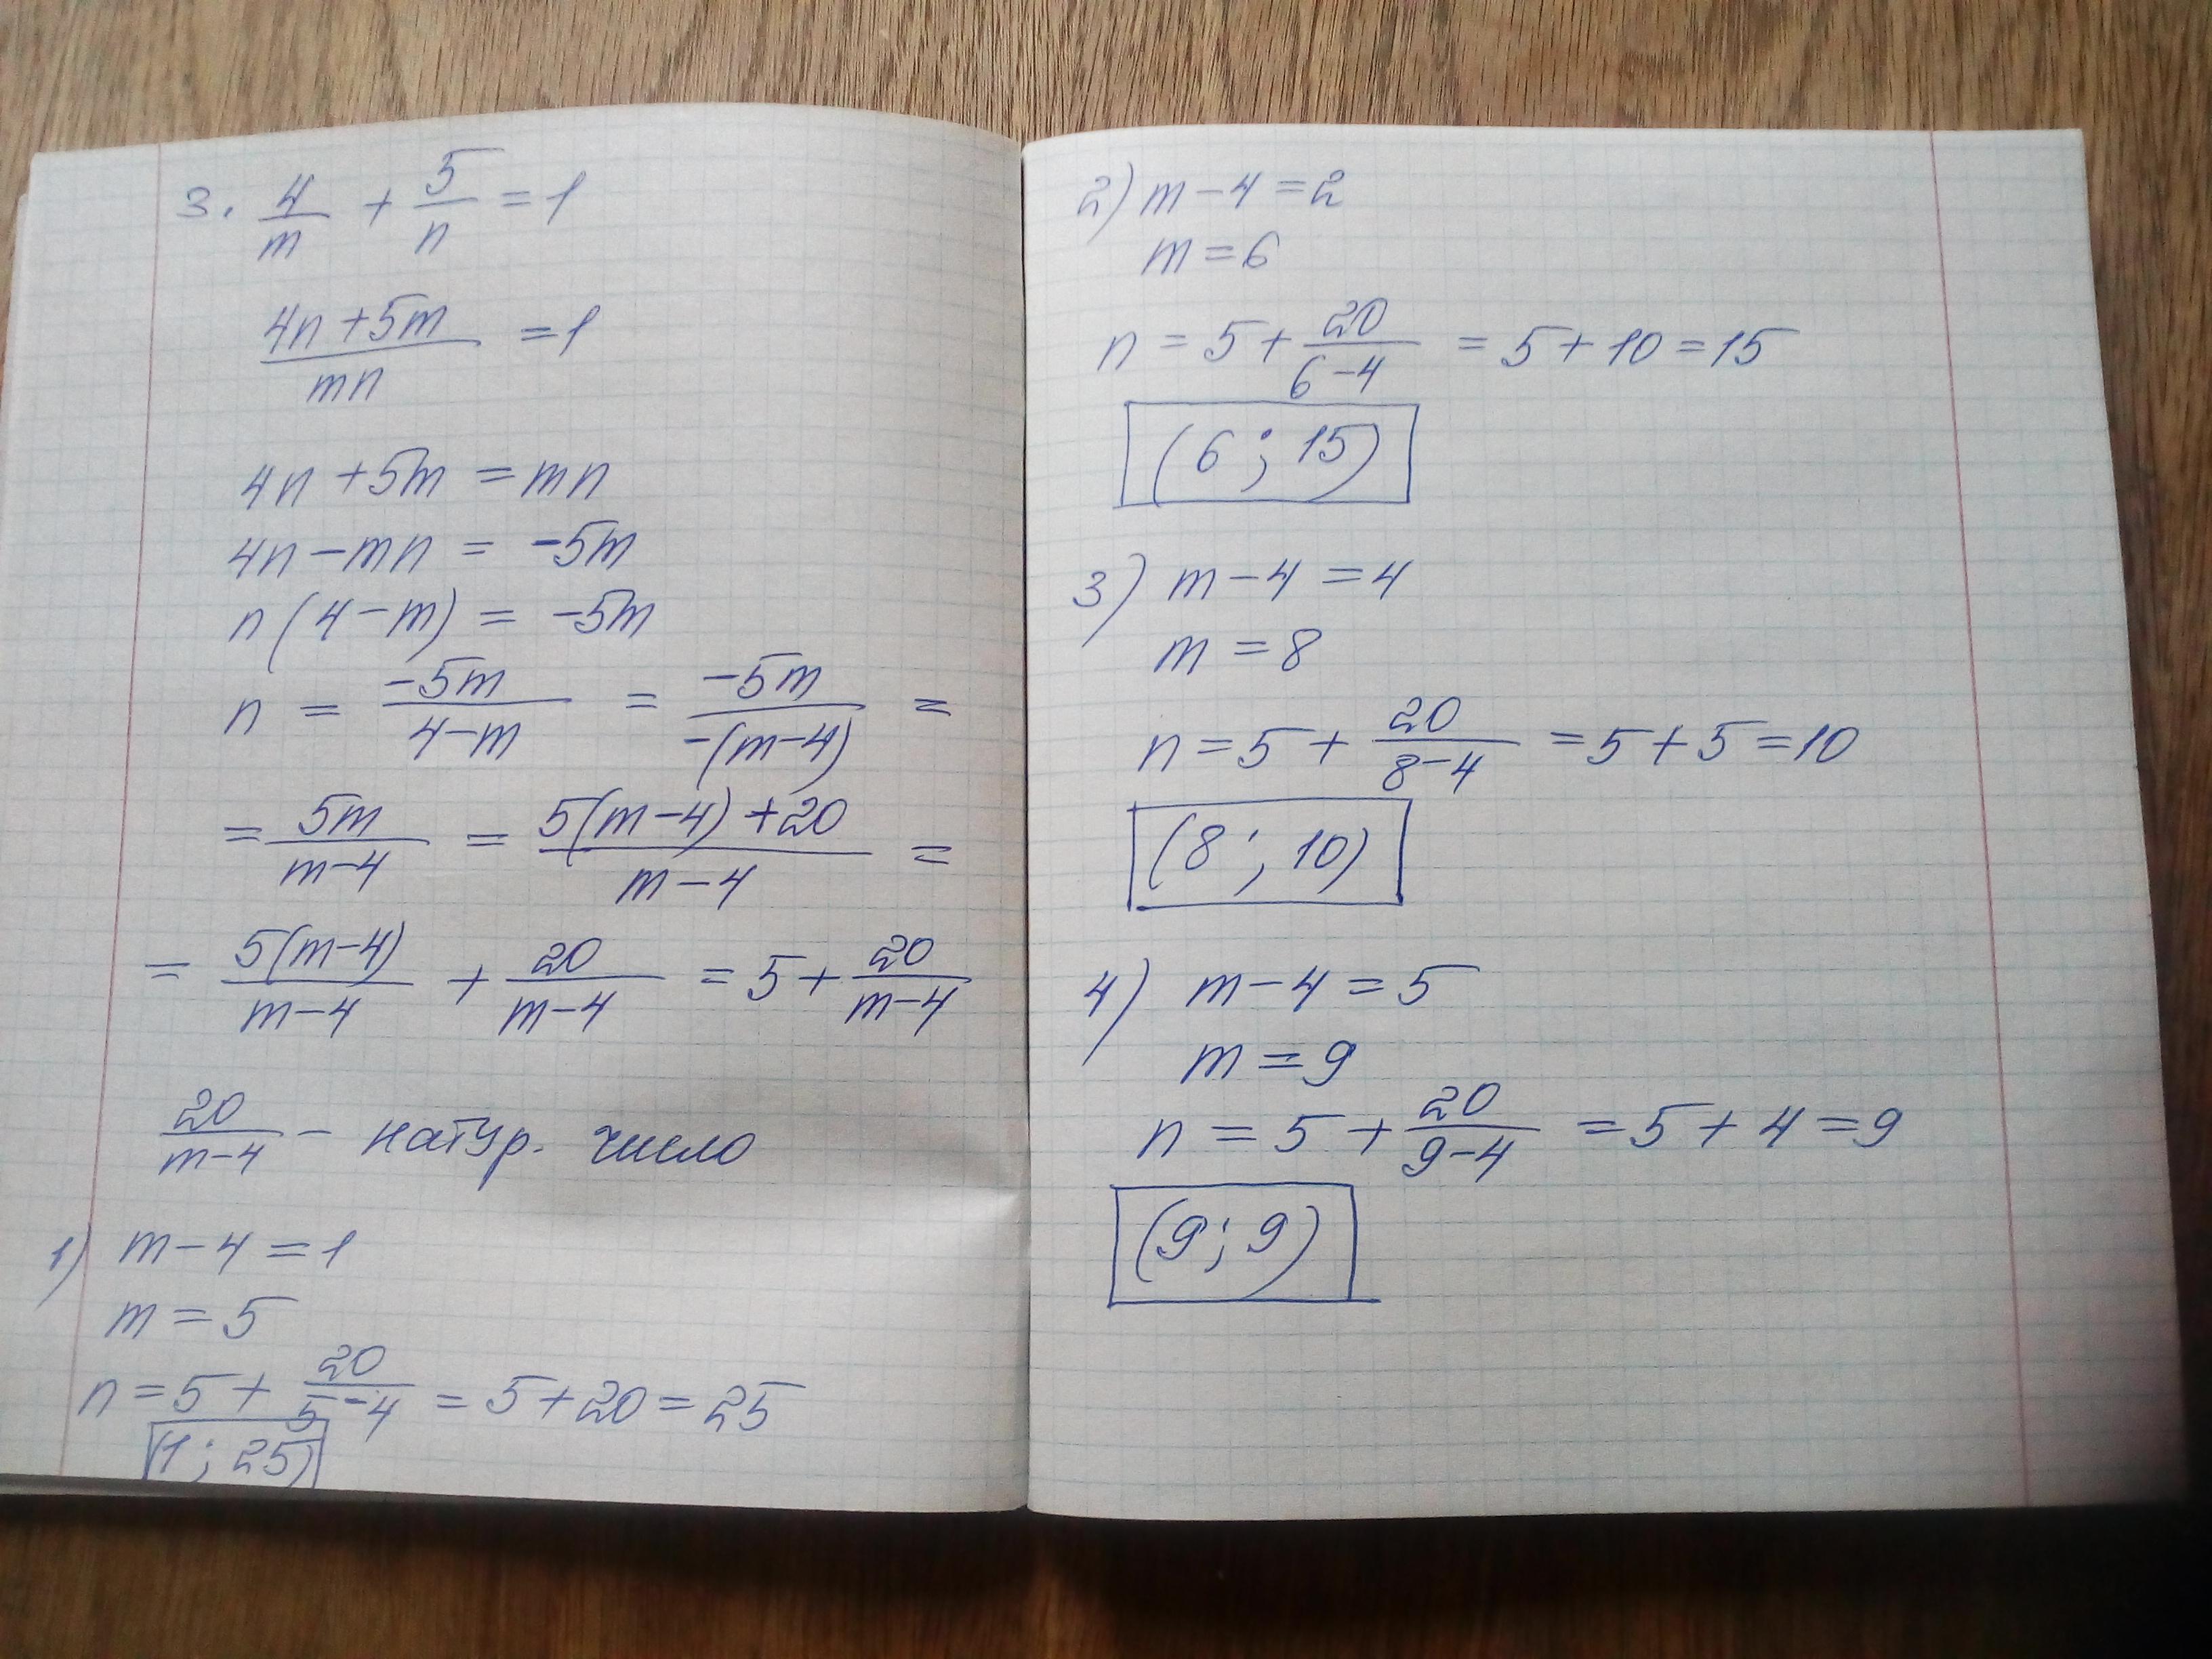 3. 4/m + 5/n = 1
(4n+5m)/mn = 1
4n+5m = mn
4n-mn = -5m
n(4-m) = -5m
n = -5m/(4-m) = -5m/(-(m-4)) =
= 5m/(m-4) = (5(m-4)+20)/(m-4) =
= 5(m-4)/(m-4) + 20/(m-4) = 5+ 20/(m-4)
20/(m-4) - натур. число
1) m-4=1
m=5
n=5+ 20/(5-4) = 5+20=25
(1; 25)
2) m-4=2
m=6
n = 5+ 20/(6-4) = 5+10=15
(6; 15)
3) m-4=4
m=8
n=5+ 20/(8-4) =5+5=10
(8; 10)
4) m-4=5
m=9
n=5+ 20/(9-4) =5+4=9
(9; 9)